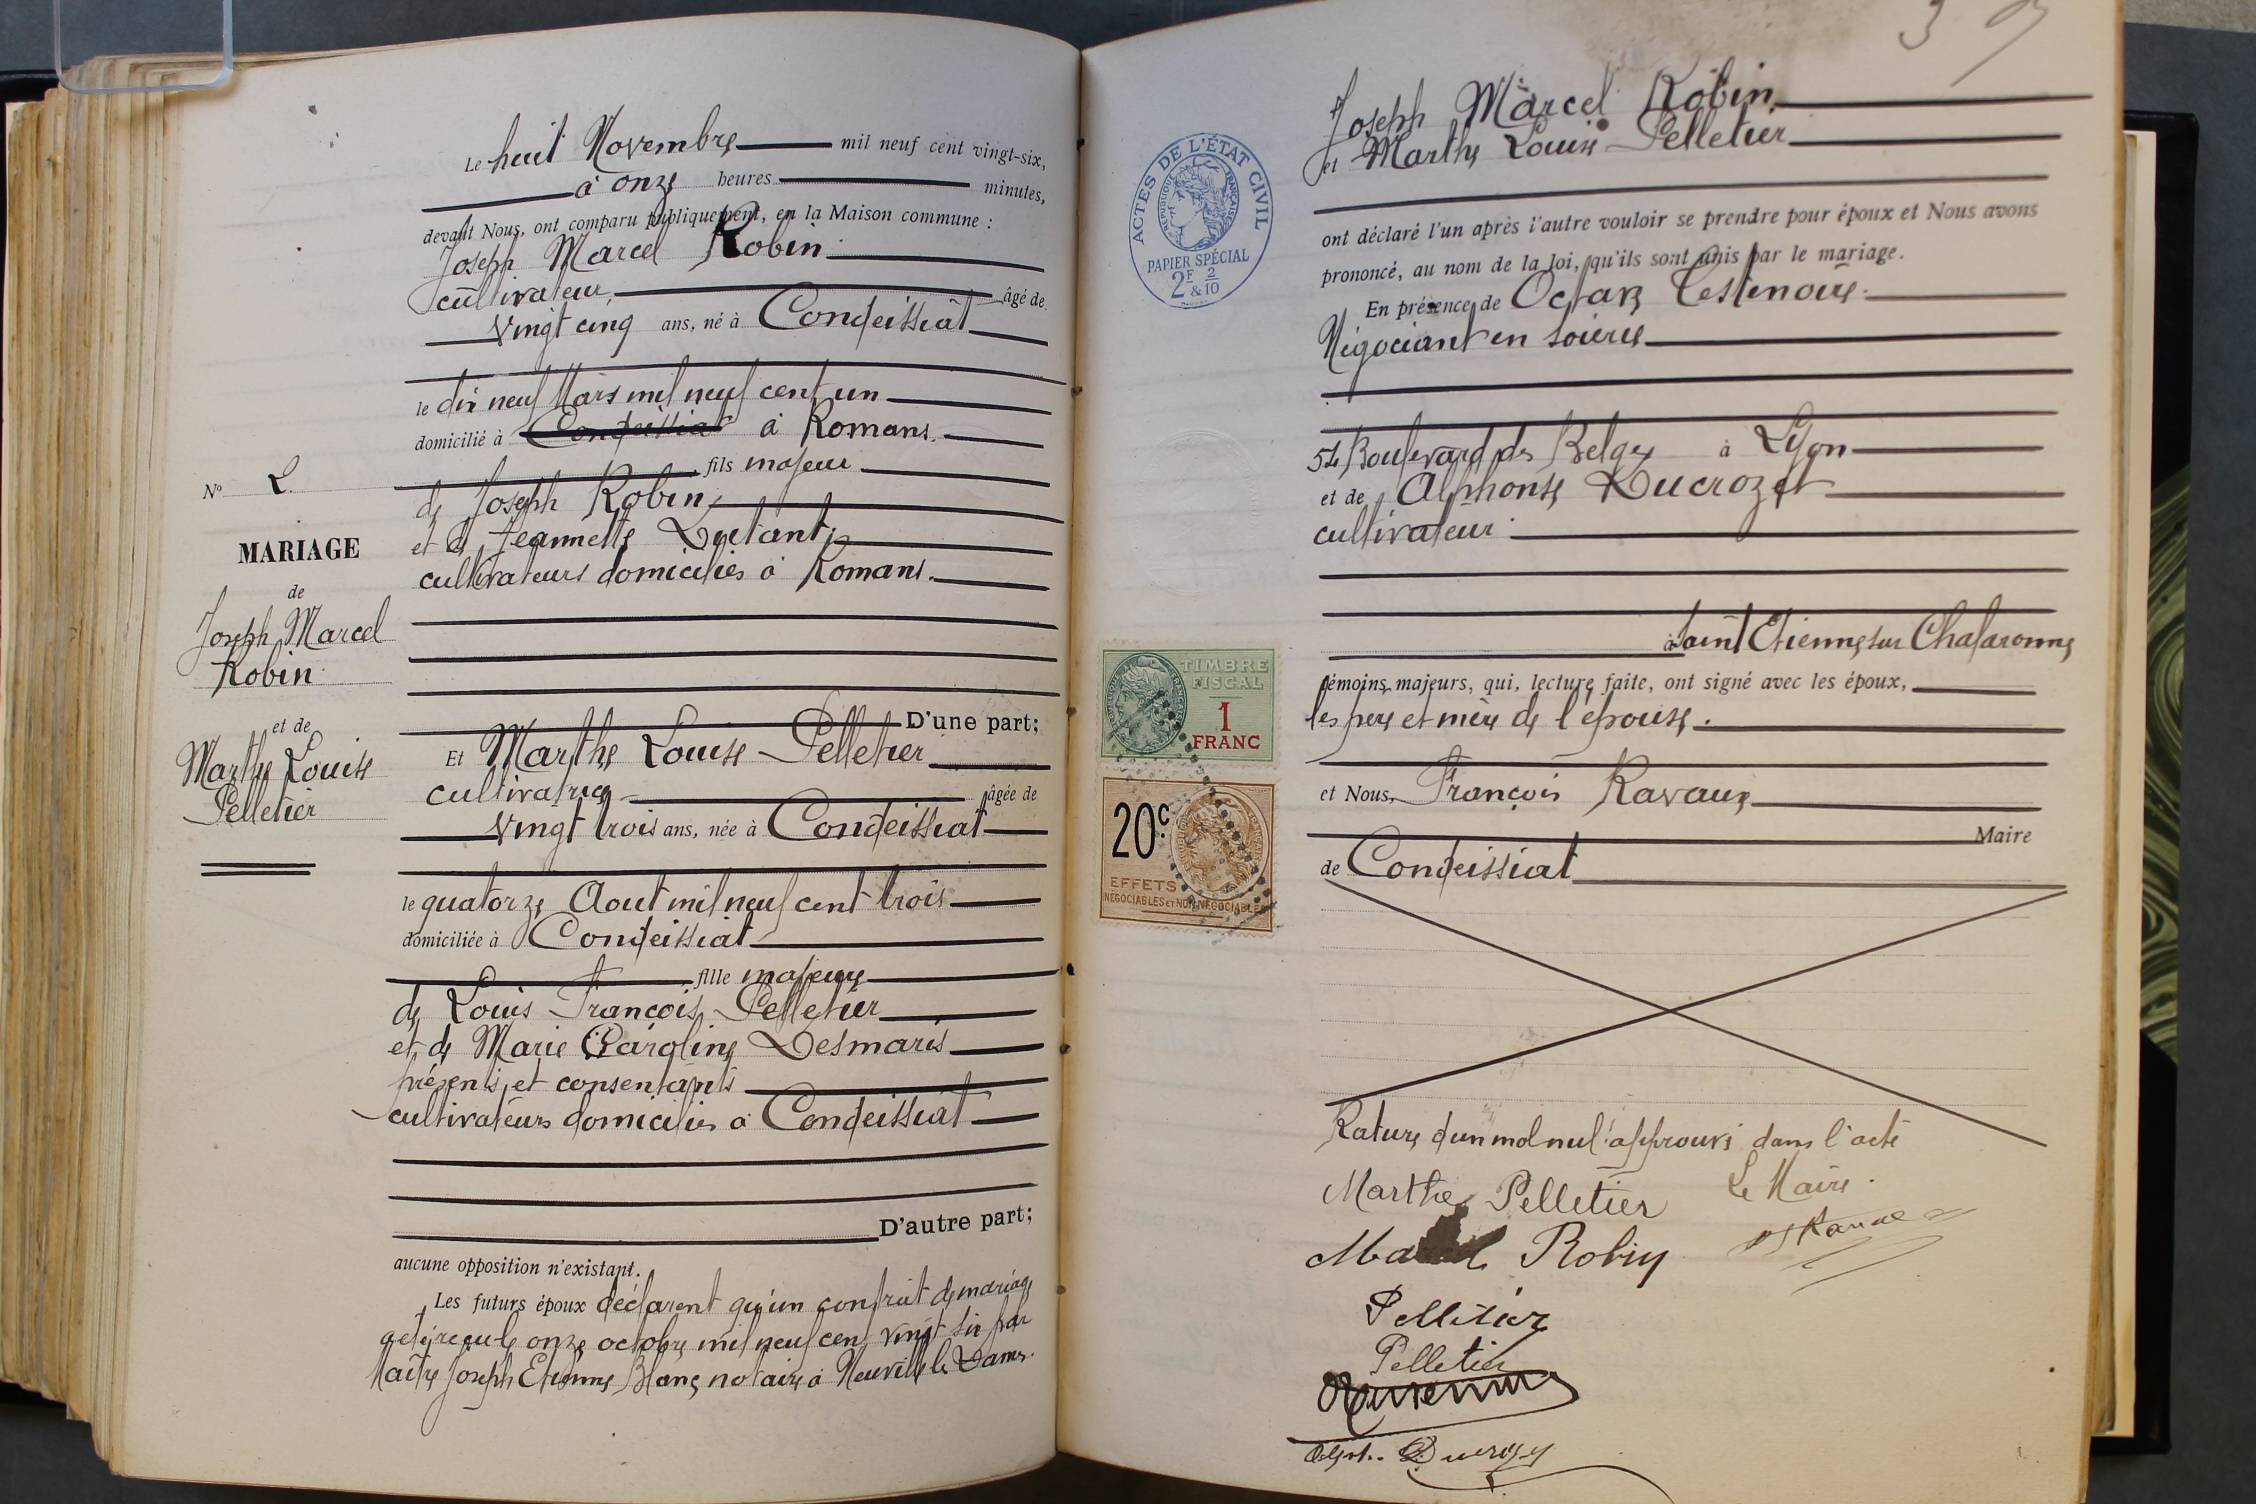 Le huit Novembre mil neuf cent vingt-six,
à onze heures minutes,
devant Nous, ont comparu publiquement, en la Maison commune :
Joseph Marcel Robin
cultivateur, âgé de
vingt cinq ans, né à Condeissiat
le dix neuf Mars mil neuf cent un
domicilié à Condeissiat à Romans.
fils majeur
de Joseph Robin,
et de Jeannette Dutant,
cultivateurs domiciliés à Romans.
D'une part;
Et Marthe Louise Pelletier
cultivatrice âgée de
vingt trois ans, née à Condeissiat
le quatorze Aout mil neuf cent trois
domiciliée à Condeissiat
fille majeure
de Louis François Pelletier
et de Marie Caroline Desmaris
présents et consentants
cultivateurs domiciliés à Condeissiat
D'autre part;
aucune opposition n'existant.
Les futurs époux déclarent qu'un contrat de mariage
a été reçu le onze octobre mil neuf cent vingt six par
Maître Joseph Etienne Blanc notaire à Neuville les Dames.
N°
MARIAGE
de
Joseph Marcel
Robin
et de
Marthe Louise
Pelletier
Joseph Marcel Robin
et Marthe Louise Pelletier
ont déclaré l'un après l'autre vouloir se prendre pour époux et Nous avons
prononcé, au nom de la loi, qu'ils sont unis par le mariage.
En présence de Octave Testenoire
Négociant en soieries
54 Boulevard des Belges à Lyon
et de Alphonse Ducrozet
cultivateur
à Saint Etienne sur Chalaronne
témoins majeurs, qui, lecture faite, ont signé avec les époux,
les père et mère de l'épouse.
et Nous, François Ravaux
Maire
de Condeissiat
Rature d'un mot nul approuvé dans l'acte
Marthe Pelletier Le Maire.
Marcel Robin
Pelletier
Pelletier
ACTES DE L'ÉTAT CIVIL
RÉPUBLIQUE FRANÇAISE
PAPIER SPÉCIAL
2F 2
& 10
TIMBRE
FISCAL
1
FRANC
20c
EFFETS
NÉGOCIABLES ET NON NÉGOCIABLES